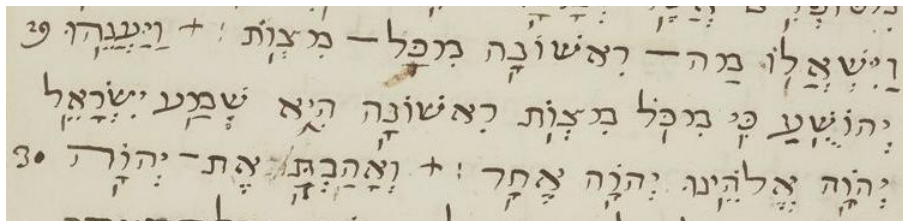 וַיִּשְׁאֲלוֹ מַה־ רִאשׁוֹנָה מִכָּל־ מִצְוֹת ׃ + וַיַּעֲנֵהוּ 29
יְהוֹשֻׁעַ כִּי מִכֹּל מִצְוֹת רִאשׁוֹנָה הִיא שְׁמַע יִשְׂרָאֵל
יְהוָֹה אֱלֹהֵינוּ יְהוָֹה אֶחָד ׃ + וְאָהַבְתָּ אֶת־ יְהוָֹה 30